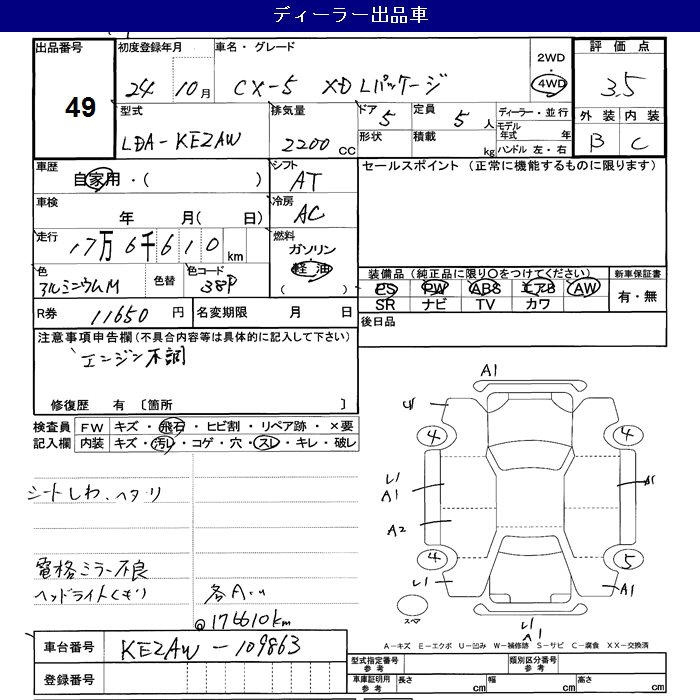 ディーラー出品車
出品番号 初度登録年月 車名・グレード 2WD・4WD 評価点
49 24 10月 CX-5 XD Lパッケージ 3.5
型式 排気量 ドア 定員 ディーラー・並行 外装 内装
LDA-KE2AW 2200 CC 5 5 人 モデル年式 年 B C
形状 積載 kg ハンドル 左・右
車歴 シフト セールスポイント (正常に機能するものに限ります)
自家用・( ) AT
車検 冷房
年 月( 日) AC
走行 燃料
17万6千610 km ガソリン
軽油
色 色替 色コード ( ) 装備品(純正品に限り○をつけてください) 新車保証書
アルミニウムM 38P PS PW ABS エアB AW 有・無
SR ナビ TV カワ
R券 11650 円 名変期限 月 日 後日品
注意事項申告欄(不具合内容等は具体的に記入して下さい)
エンジン不調
修復歴 有 〔箇所 〕
検査員 FW キズ・飛石・ヒビ割・リペア跡・×要
記入欄 内装 キズ・汚レ・コゲ・穴・スレ・キレ・破レ
シートしわ、ヘタリ
電格ミラー不良
ヘッドライトくもり
@176610km
A1
4 4
L1
A1
A2
4 5
L1 A1
L1
A1
A-キズ E-エクボ U-凹み W-補修跡 S-サビ C-腐食 XX-交換済
車台番号 KE2AW-109863
登録番号
型式指定番号 参考 類別区分番号 参考
車庫証明用 参考 長さ cm 幅 cm 高さ cm